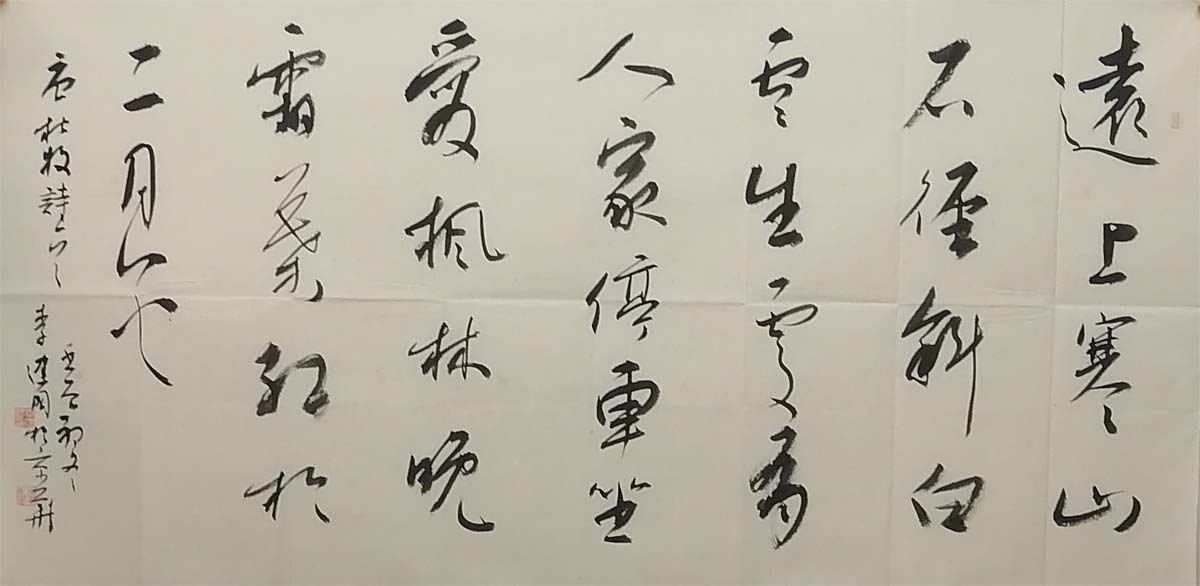 遠上寒山
石徑斜白
雲生處有
人家停車坐
愛楓林晚
霜葉紅於
二月花
唐杜牧詩
李建